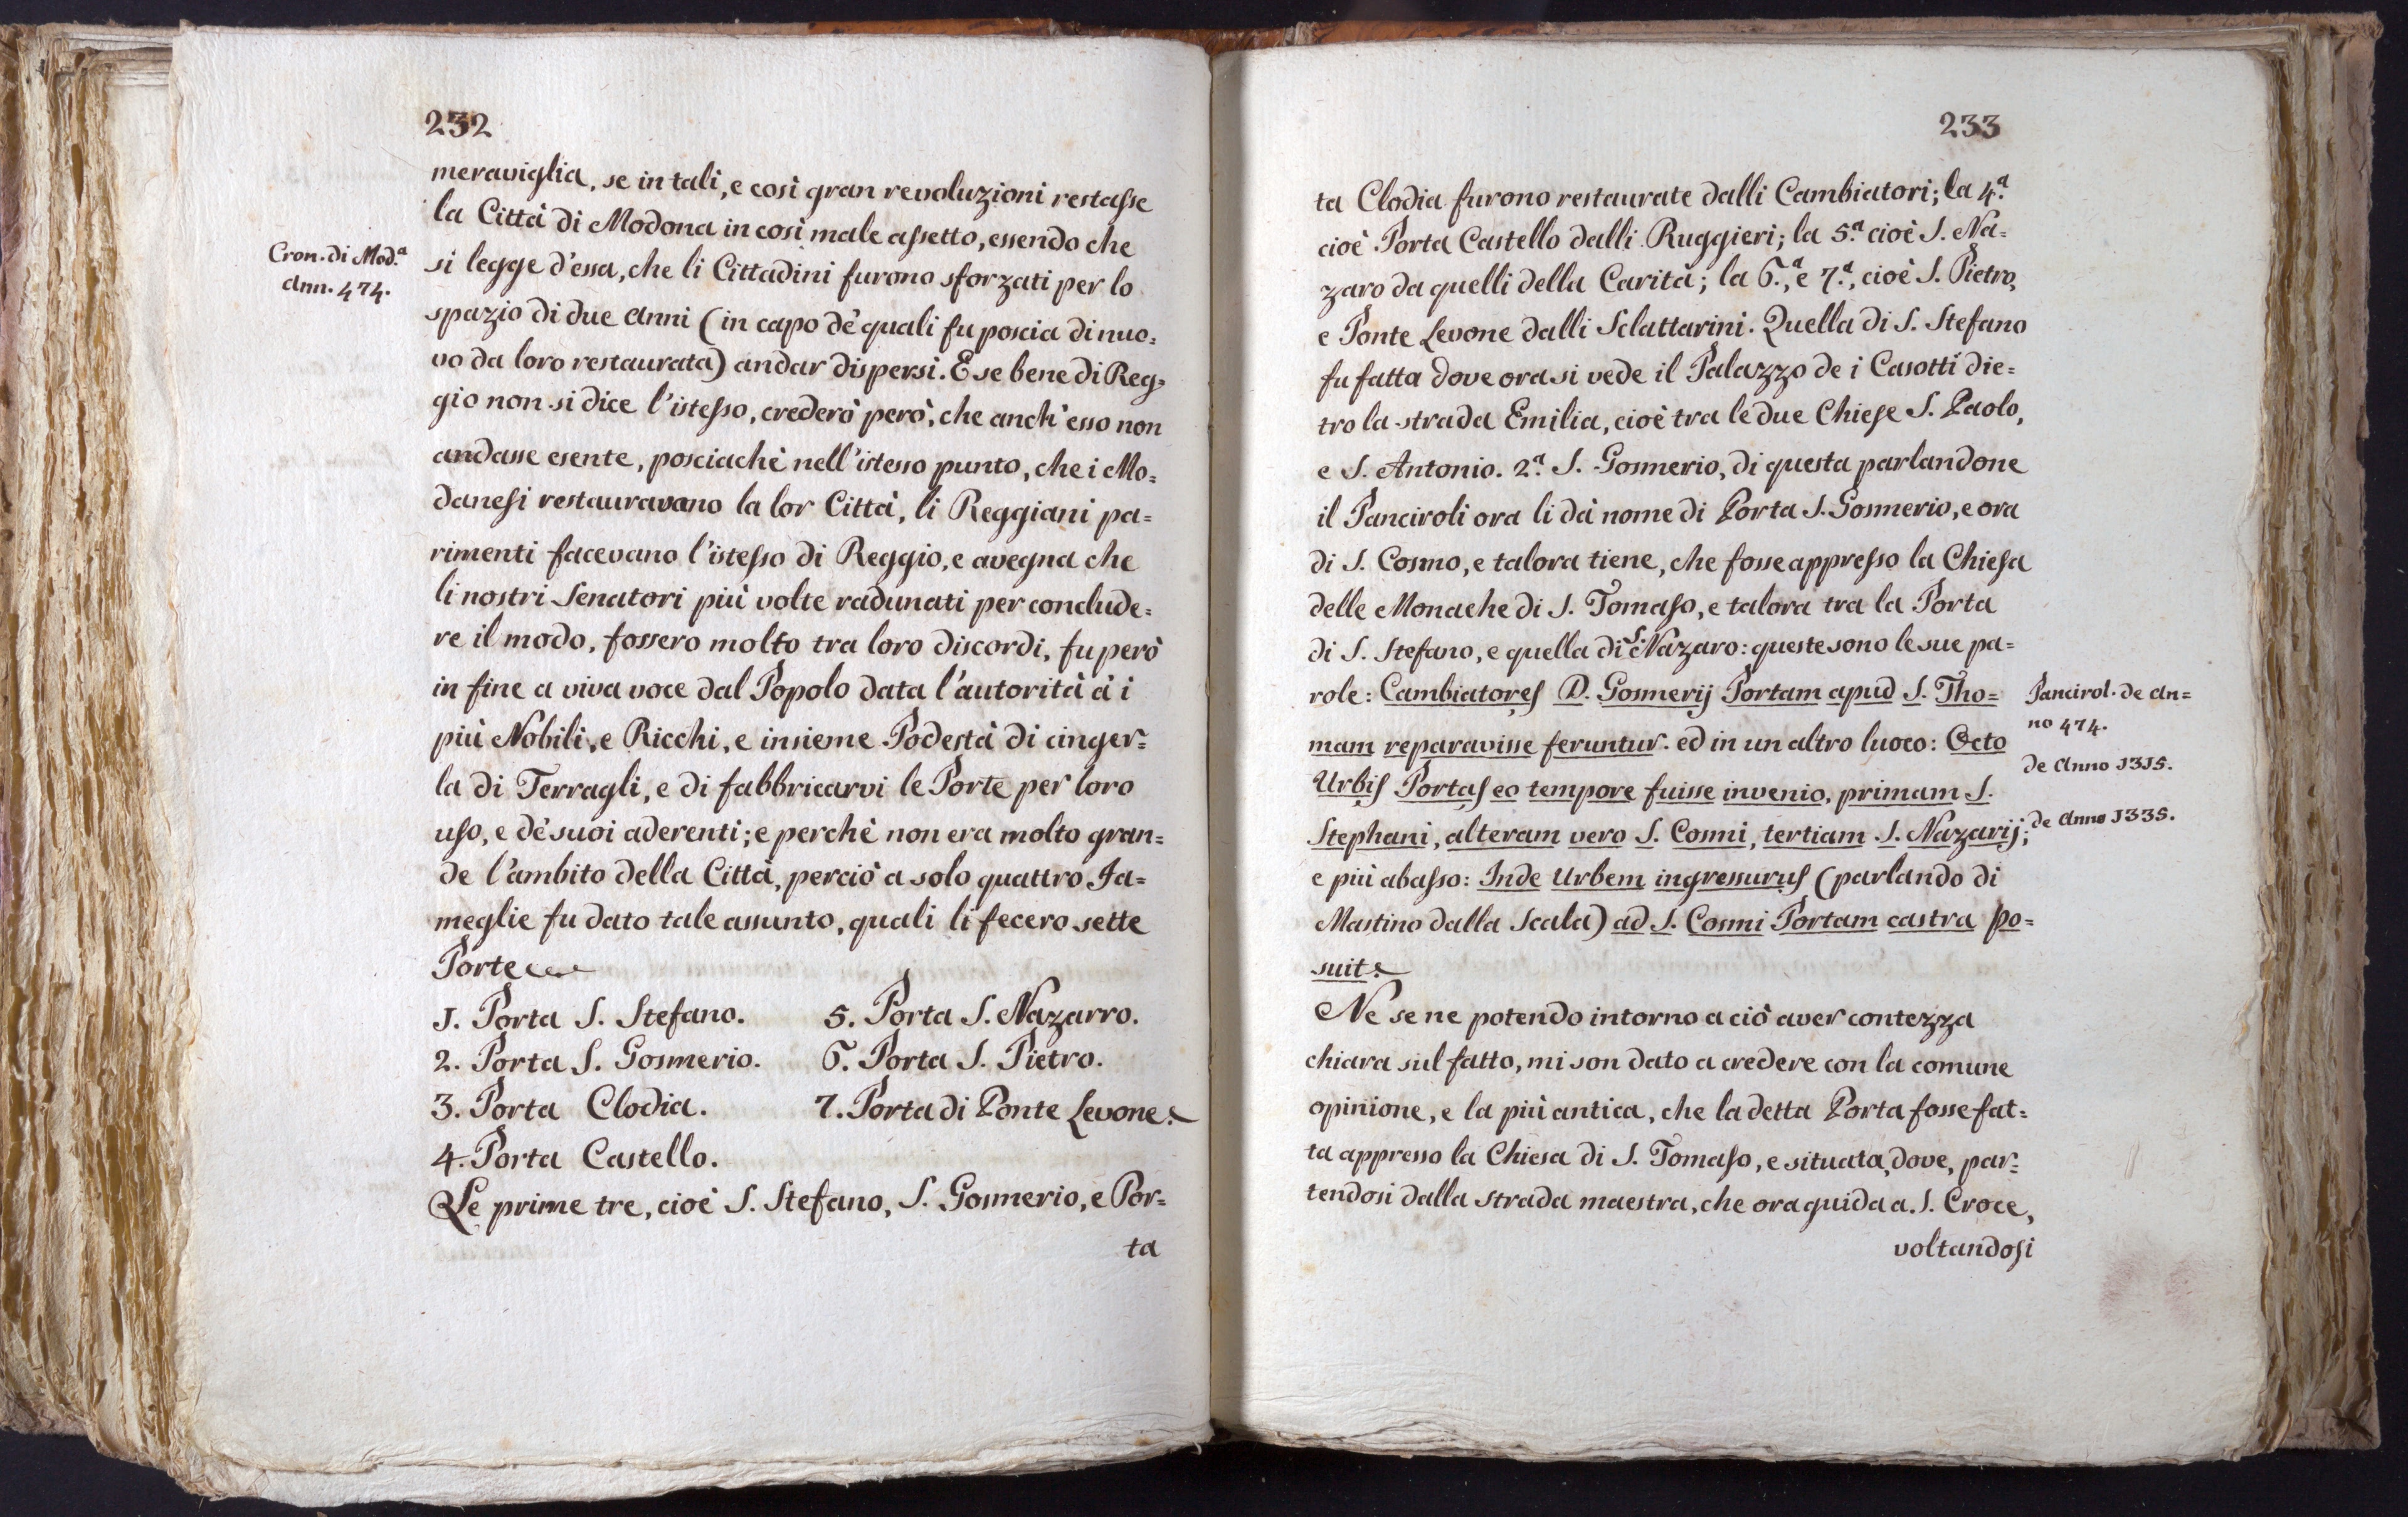 232
meraviglia, se in tali, e così gran revoluzioni restasse
la Città di Modona in così male assetto, essendo che
Cron. di Mod.ª
Ann. 474.
si legge d'essa, che li Cittadini furono sforzati per lo
spazio di due Anni (in capo de' quali fu poscia di nuo=
vo da loro restaurata) andar dispersi. E se bene di Reg=
gio non si dice l'istesso, crederò però, che anch'esso non
andasse esente, posciachè nell'istesso punto, che i Mo=
danesi restauravano la lor Città, li Reggiani pa=
rimenti facevano l'istesso di Reggio, e avegna che
li nostri Senatori più volte radunati per conclude=
re il modo, fossero molto tra loro discordi, fu però
in fine a viva voce dal Popolo data l'autorità à i
più Nobili, e Ricchi, e insieme Podestà di cinger=
la di Terragli, e di fabbricarvi le Porte per loro
uso, e de' suoi aderenti; e perchè non era molto gran=
de l'ambito della Città, perciò a solo quattro Fa=
meglie fu dato tale assunto, quali li fecero sette
Porte
1. Porta S. Stefano. 5. Porta S. Nazarro.
2. Porta S. Gosmerio. 6. Porta S. Pietro.
3. Porta Clodia. 7. Porta di Ponte Levone.
4. Porta Castello.
Le prime tre, cioè S. Stefano, S. Gosmerio, e Por=
ta
233
ta Clodia furono restaurate dalli Cambiatori; la 4.ª
cioè Porta Castello dalli Ruggieri; la 5.ª cioè S. Na=
zaro da quelli della Carità; la 6.ª, e 7.ª, cioè S. Pietro,
e Ponte Levone dalli Sclattarini. Quella di S. Stefano
fu fatta dove ora si vede il Palazzo de i Casotti die=
tro la strada Emilia, cioè tra le due Chiese S. Paolo,
e S. Antonio. 2.ª S. Gosmerio, di questa parlandone
il Panciroli ora li dà nome di Porta S. Gosmerio, e ora
di S. Cosmo, e talora tiene, che fosse appresso la Chiesa
delle Monache di S. Tomaso, e talora tra la Porta
di S. Stefano, e quella di S. Nazaro: queste sono le sue pa=
role: Cambiatores D. Gosmerij Portam apud S. Tho=
Pancirol. de An=
no 474.
mam reparavisse feruntur. ed in un altro luoco: Octo
de Anno 1315.
Urbis Portas eo tempore fuisse invenio, primam S.
Stephani, alteram vero S. Cosmi, tertiam S. Nazarij;
de Anno 1335.
e più abasso: Inde Urbem ingressurus (parlando di
Mastino dalla Scala) ad S. Cosmi Portam castra po=
suit.
Ne se ne potendo intorno a ciò aver contezza
chiara sul fatto, mi son dato a credere con la comune
opinione, e la più antica, che la detta Porta fosse fat=
ta appresso la Chiesa di S. Tomaso, e situata, dove, par=
tendosi dalla strada maestra, che ora guida a S. Croce,
voltandosi